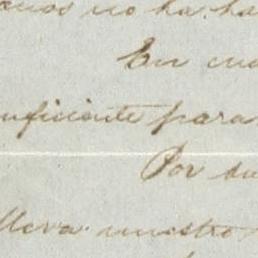 no ha ha
En cu
uficiente para
Por su
lleva nuestro